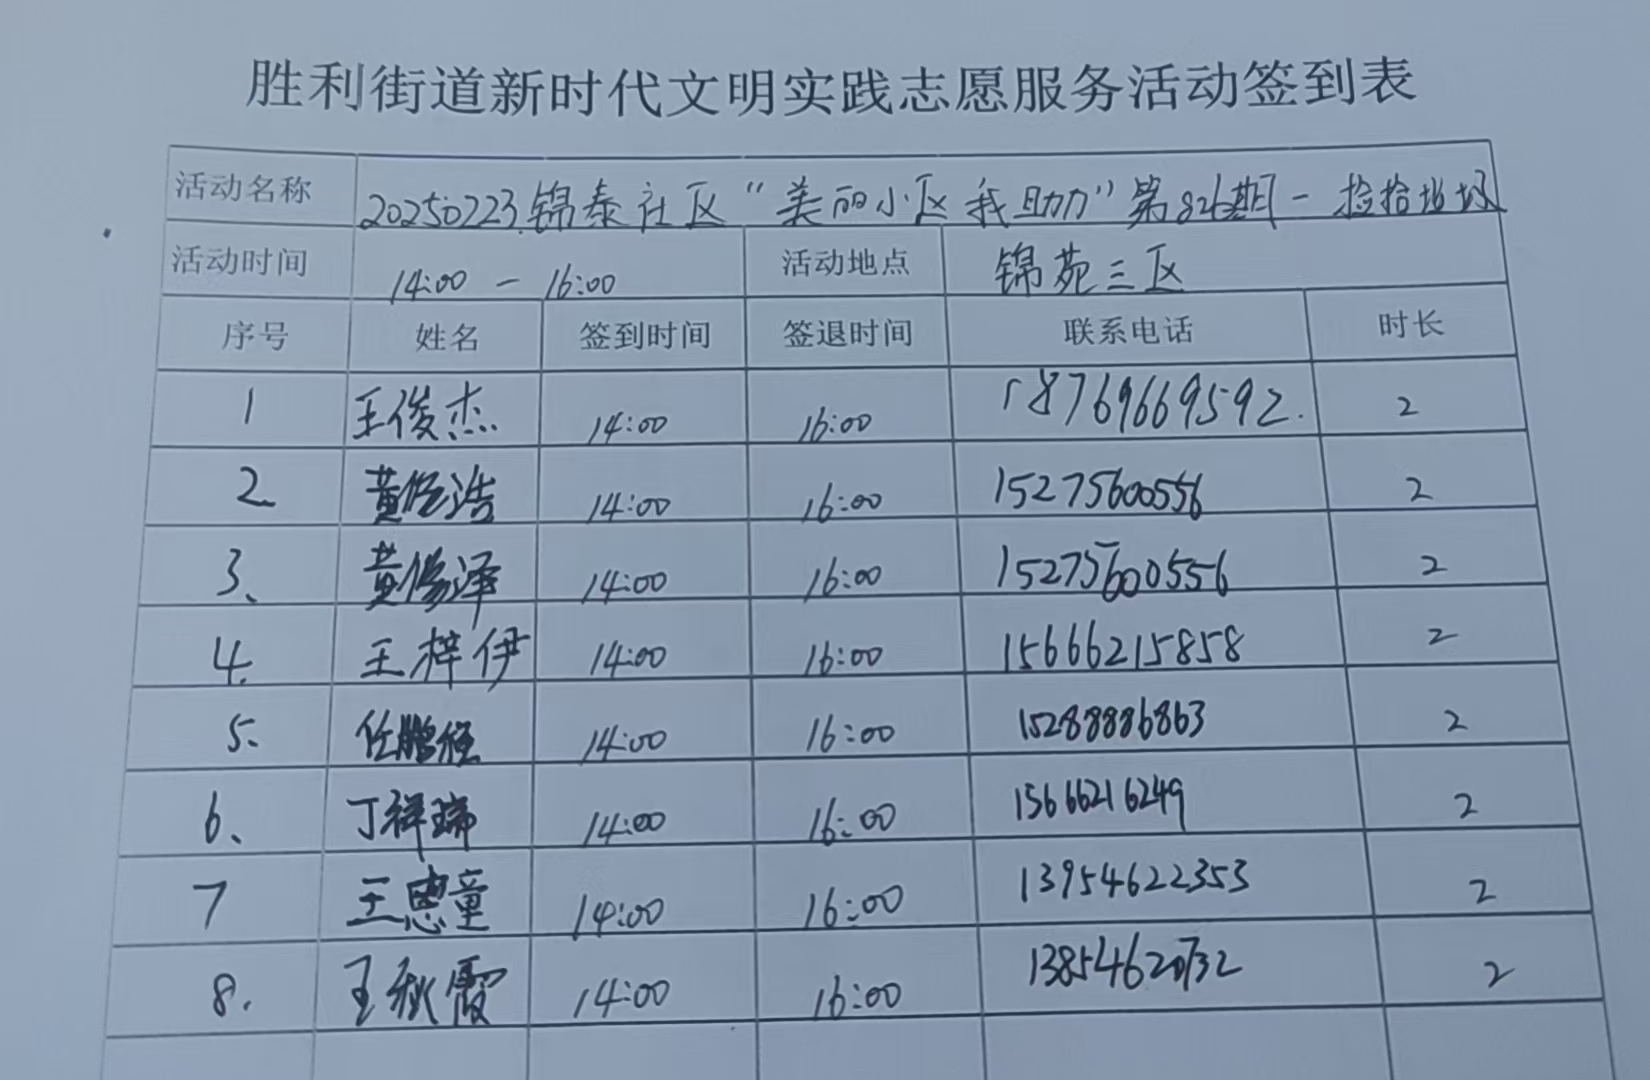 胜利街道新时代文明实践志愿服务活动签到表
活动名称 20250223.锦泰社区“美丽小区 我助力”第826期－捡拾垃圾
活动时间 14:00 － 16:00 活动地点 锦苑三区
序号 姓名 签到时间 签退时间 联系电话 时长
1 王俊杰 14:00 16:00 18769669592. 2
2 黄俊浩 14:00 16:00 15275600556 2
3、 黄俊泽 14:00 16:00 15275600556 2
4. 王梓伊 14:00 16:00 15666215858 2
5. 任鹏 14:00 16:00 15288886863 2
6、 丁祥瑞 14:00 16:00 15666216249 2
7 王思童 14:00 16:00 13954622353 2
8. 王秋霞 14:00 16:00 2